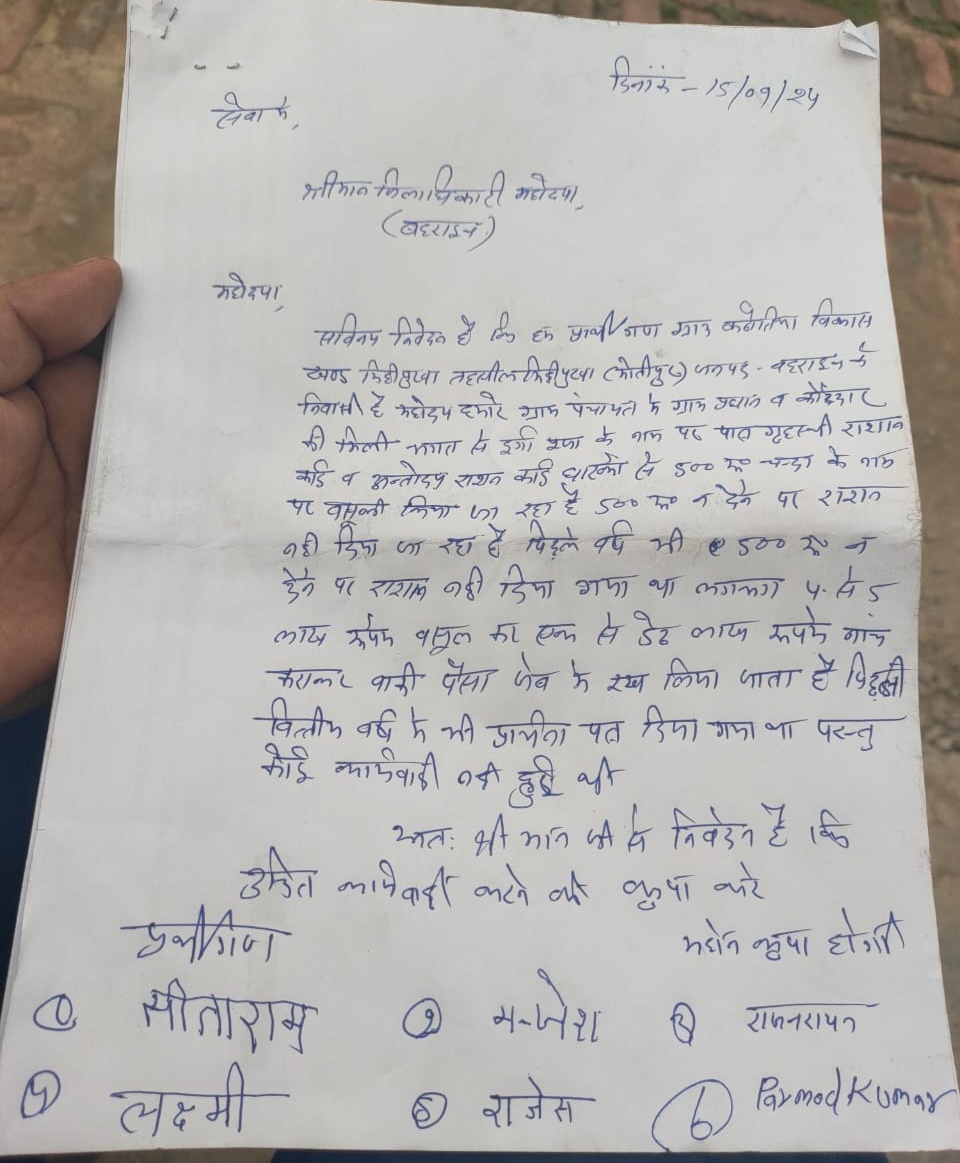 दिनांक - 15/09/24
सेवा में,
श्रीमान जिलाधिकारी महोदया,
(बहराइच)
महोदया,
सविनय निवेदन है कि हम प्रार्थी गण ग्राम विकास
खण्ड मिहीपुरवा तहसील मिहीपुरवा (मोतीपुर) जनपद - बहराइच के
निवासी है महोदय हमारे ग्राम पंचायत के ग्राम प्रधान व कोटेदार
की मिली भगत से दुर्गा पूजा के नाम पर पात्र गृहस्थी राशन
कार्ड व अन्तोदय राशन कार्ड धारको से 500 रू चन्दा के नाम
पर वसूली किया जा रहा है 500 रू न देने पर राशन
नही दिया जा रहा है पिछले वर्ष भी 500 रू न
देने पर राशन नही दिया गया था लगभग 4 से 5
लाख रूपये वसूल कर एक से डेढ लाख रूपये नाच
कराकर बाकी पैसा जेब मे रख लिया जाता है पिछली
वित्तीय वर्ष मे भी प्रार्थना पत्र दिया गया था परन्तु
कोई कार्यवाही नही हुई थी
अत: श्री मान जी से निवेदन है कि
उचित कार्यवाही करने की कृपा करे
प्रार्थीगण महान कृपा होगी
① सीताराम ② मन्जेश ③ रामनरायन
④ लक्ष्मी ⑤ राजेस ⑥ Parmod Kumar